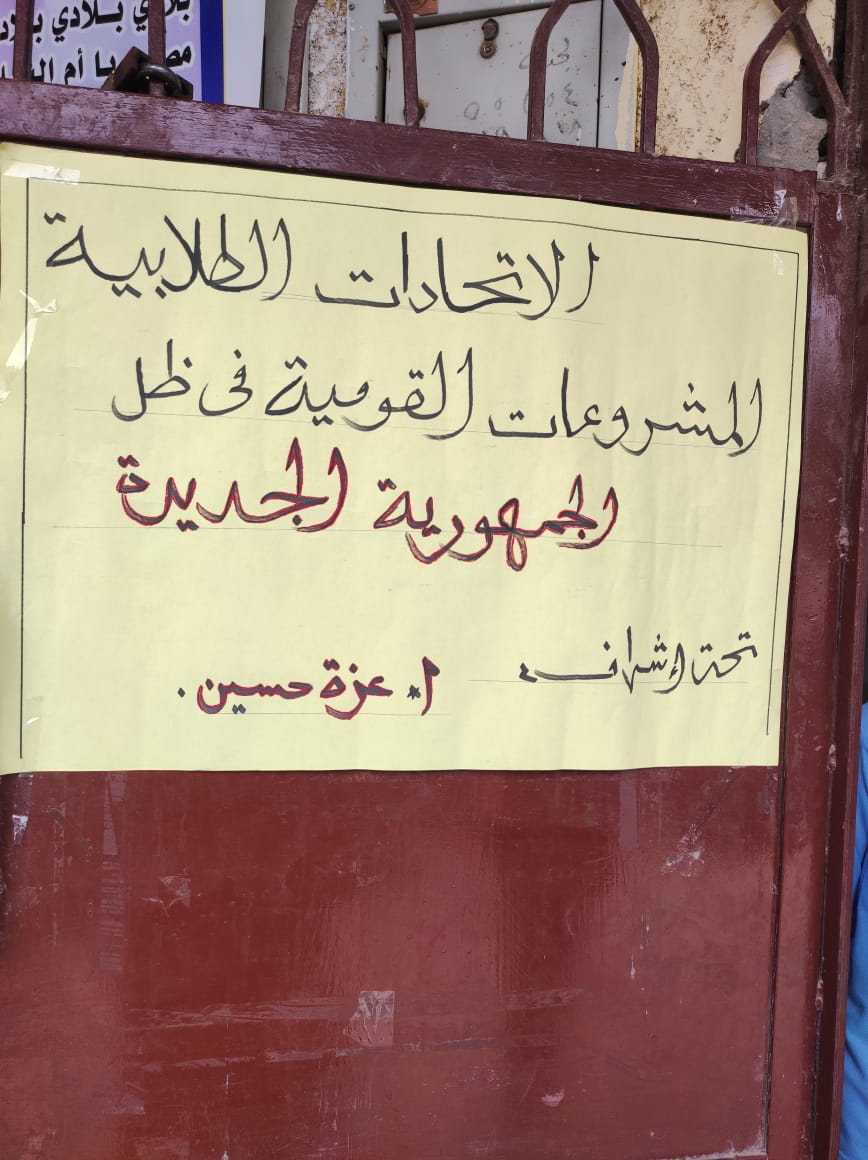 بلادي بلادي
مصر يا أم
لجنة
الاتحادات الطلابية
المشروعات القومية فى ظل
الجمهورية الجديدة
تحت إشراف
أ. عزة حسين.